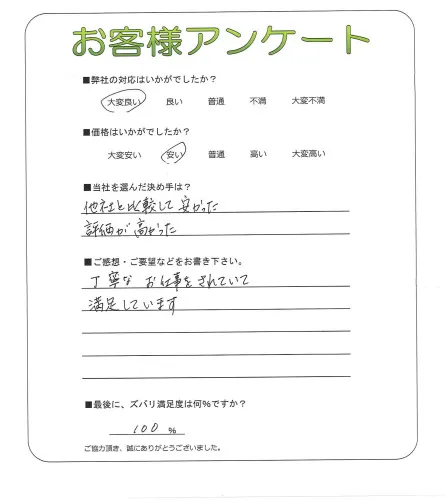 お客様アンケート
■弊社の対応はいかがでしたか？
大変良い 良い 普通 不満 大変不満
■価格はいかがでしたか？
大変安い 安い 普通 高い 大変高い
■当社を選んだ決め手は？
他社と比較して安かった
評価が高かった
■ご感想・ご要望などをお書き下さい。
丁寧な お仕事をされていて
満足しています
■最後に、ズバリ満足度は何%ですか？
100 %
ご協力頂き、誠にありがとうございました。